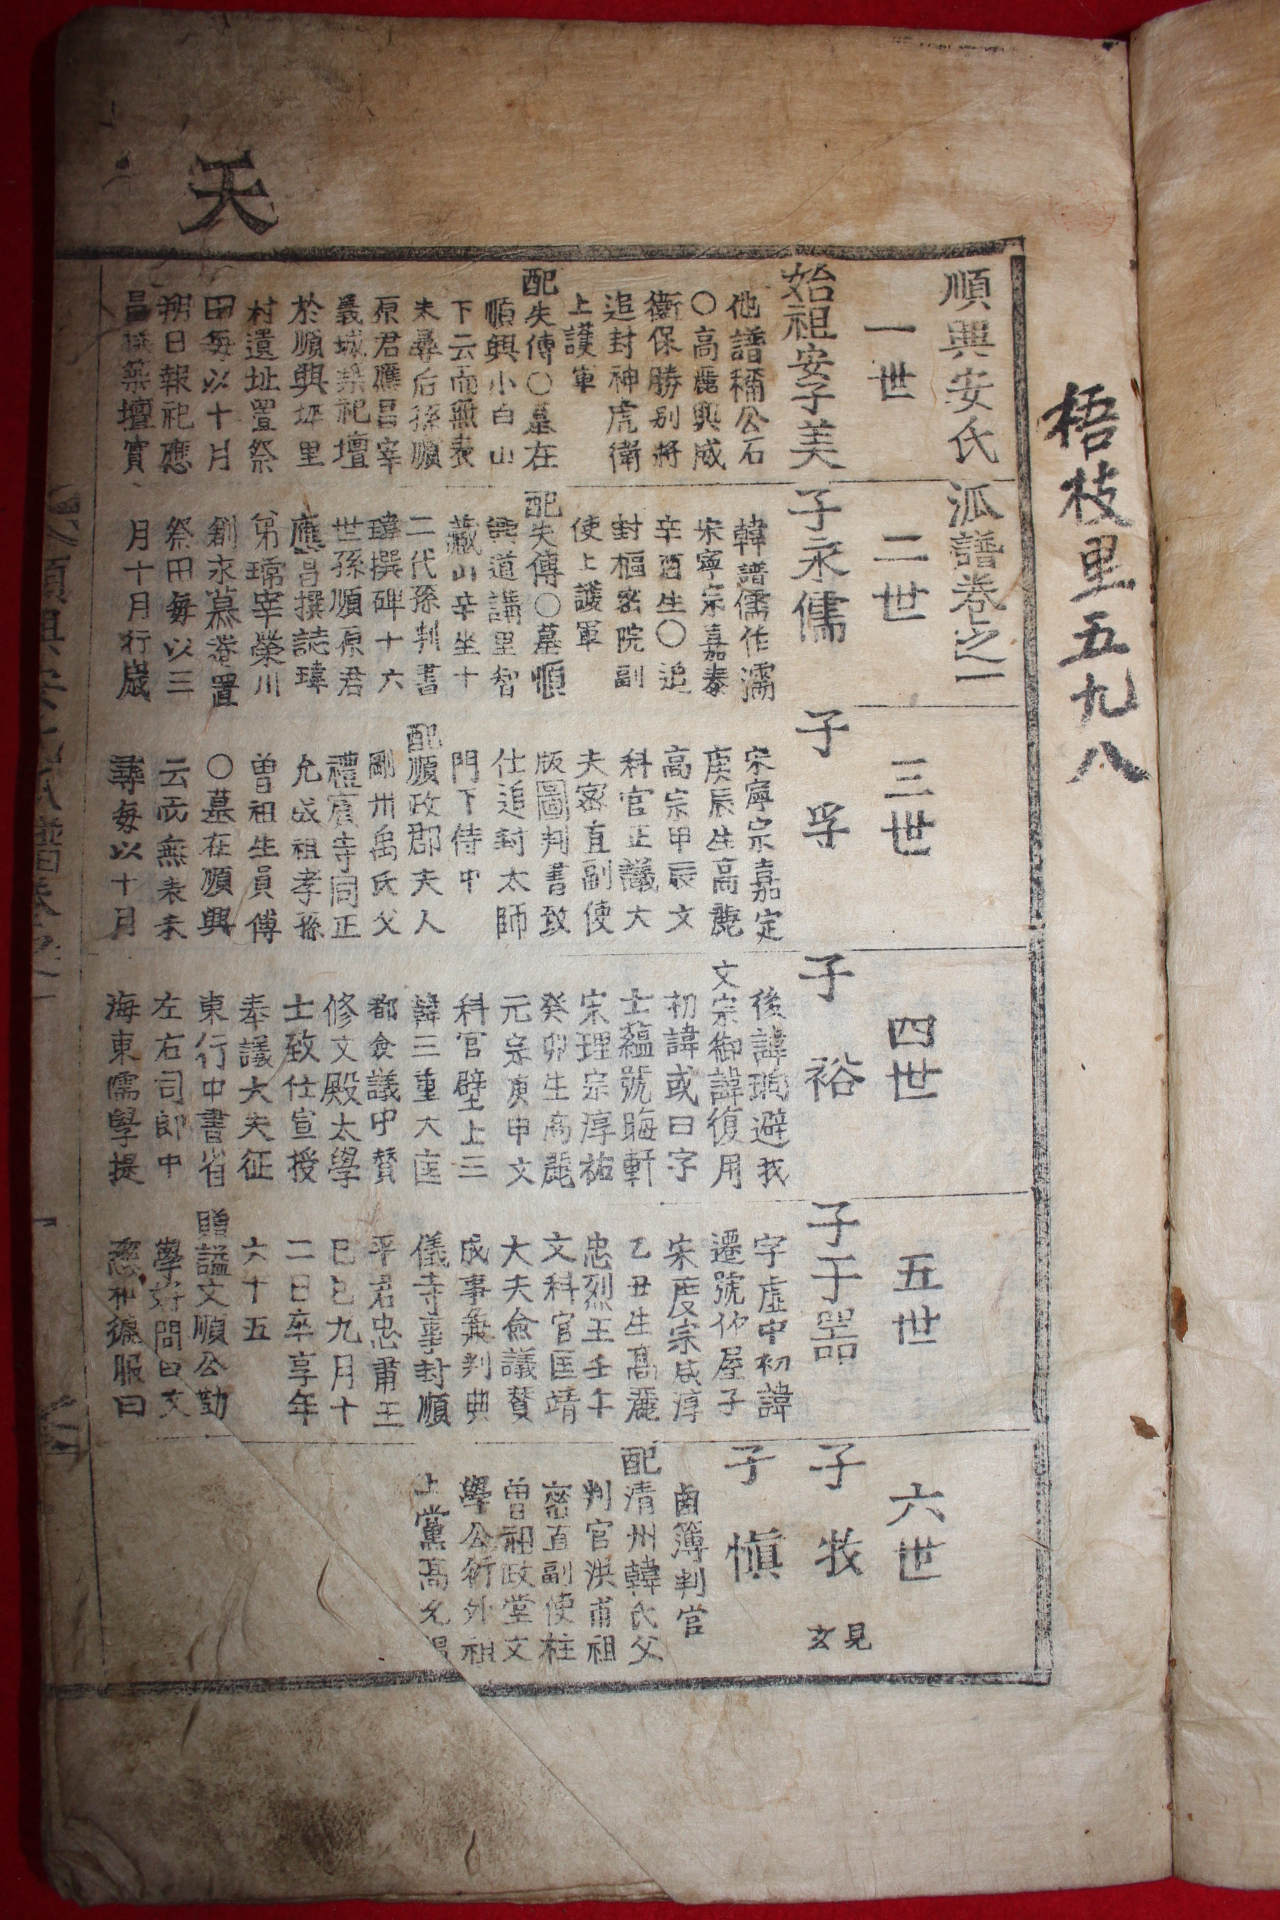 梧枝里五九八
天
順興安氏派譜卷之一
一世
始祖安子美
他譜稱公石
○高麗興威
衛保勝別將
追封神虎衛
上護軍
配失傳○墓在
順興小白山
下云而無表
未尋后孫順
原君應昌宰
義城築祀壇
於順興坪里
村遺址置祭
田每以十月
朔日報祀應
昌撰築壇實
二世
子永儒
韓譜儒作濡
宋寧宗嘉泰
辛酉生○追
封樞密院副
使上護軍
配失傳○墓順
興道講里智
藏山辛坐十
二代孫判書
瑋撰碑十六
世孫順原君
應昌撰誌瑋
弟琇宰榮川
創永慕菴置
祭田每以三
月十月行歲
三世
子孚
宋寧宗嘉定
庚辰生高麗
高宗甲辰文
科官正議大
夫密直副使
版圖判書致
仕追封太師
門下侍中
配順政郡夫人
剛州禹氏父
禮賓寺同正
允成祖孝孫
曾祖生員傅
○墓在順興
云而無表未
尋每以十月
四世
子裕
後諱珦避我
文宗御諱復用
初諱或曰字
士蘊號晦軒
宋理宗淳祐
癸卯生高麗
元宗庚申文
科官壁上三
韓三重大匡
都僉議中贊
修文殿太學
士致仕宣授
奉議大夫征
東行中書省
左右司郎中
海東儒學提
五世
子于器
字虛中初諱
遷號竹屋子
宋度宗咸淳
乙丑生高麗
忠烈王壬午
文科官匡靖
大夫僉議贊
成事兼判典
儀寺事封順
平君忠肅王
己巳九月十
二日卒享年
六十五
贈謚文順公勤
學好問曰文
慈和徧服曰
六世
子牧
見玄
子愼
鹵簿判官
配清州韓氏父
判官洪甫祖
密直副使柱
曾祖政堂文
學公衍外祖
上黨高允